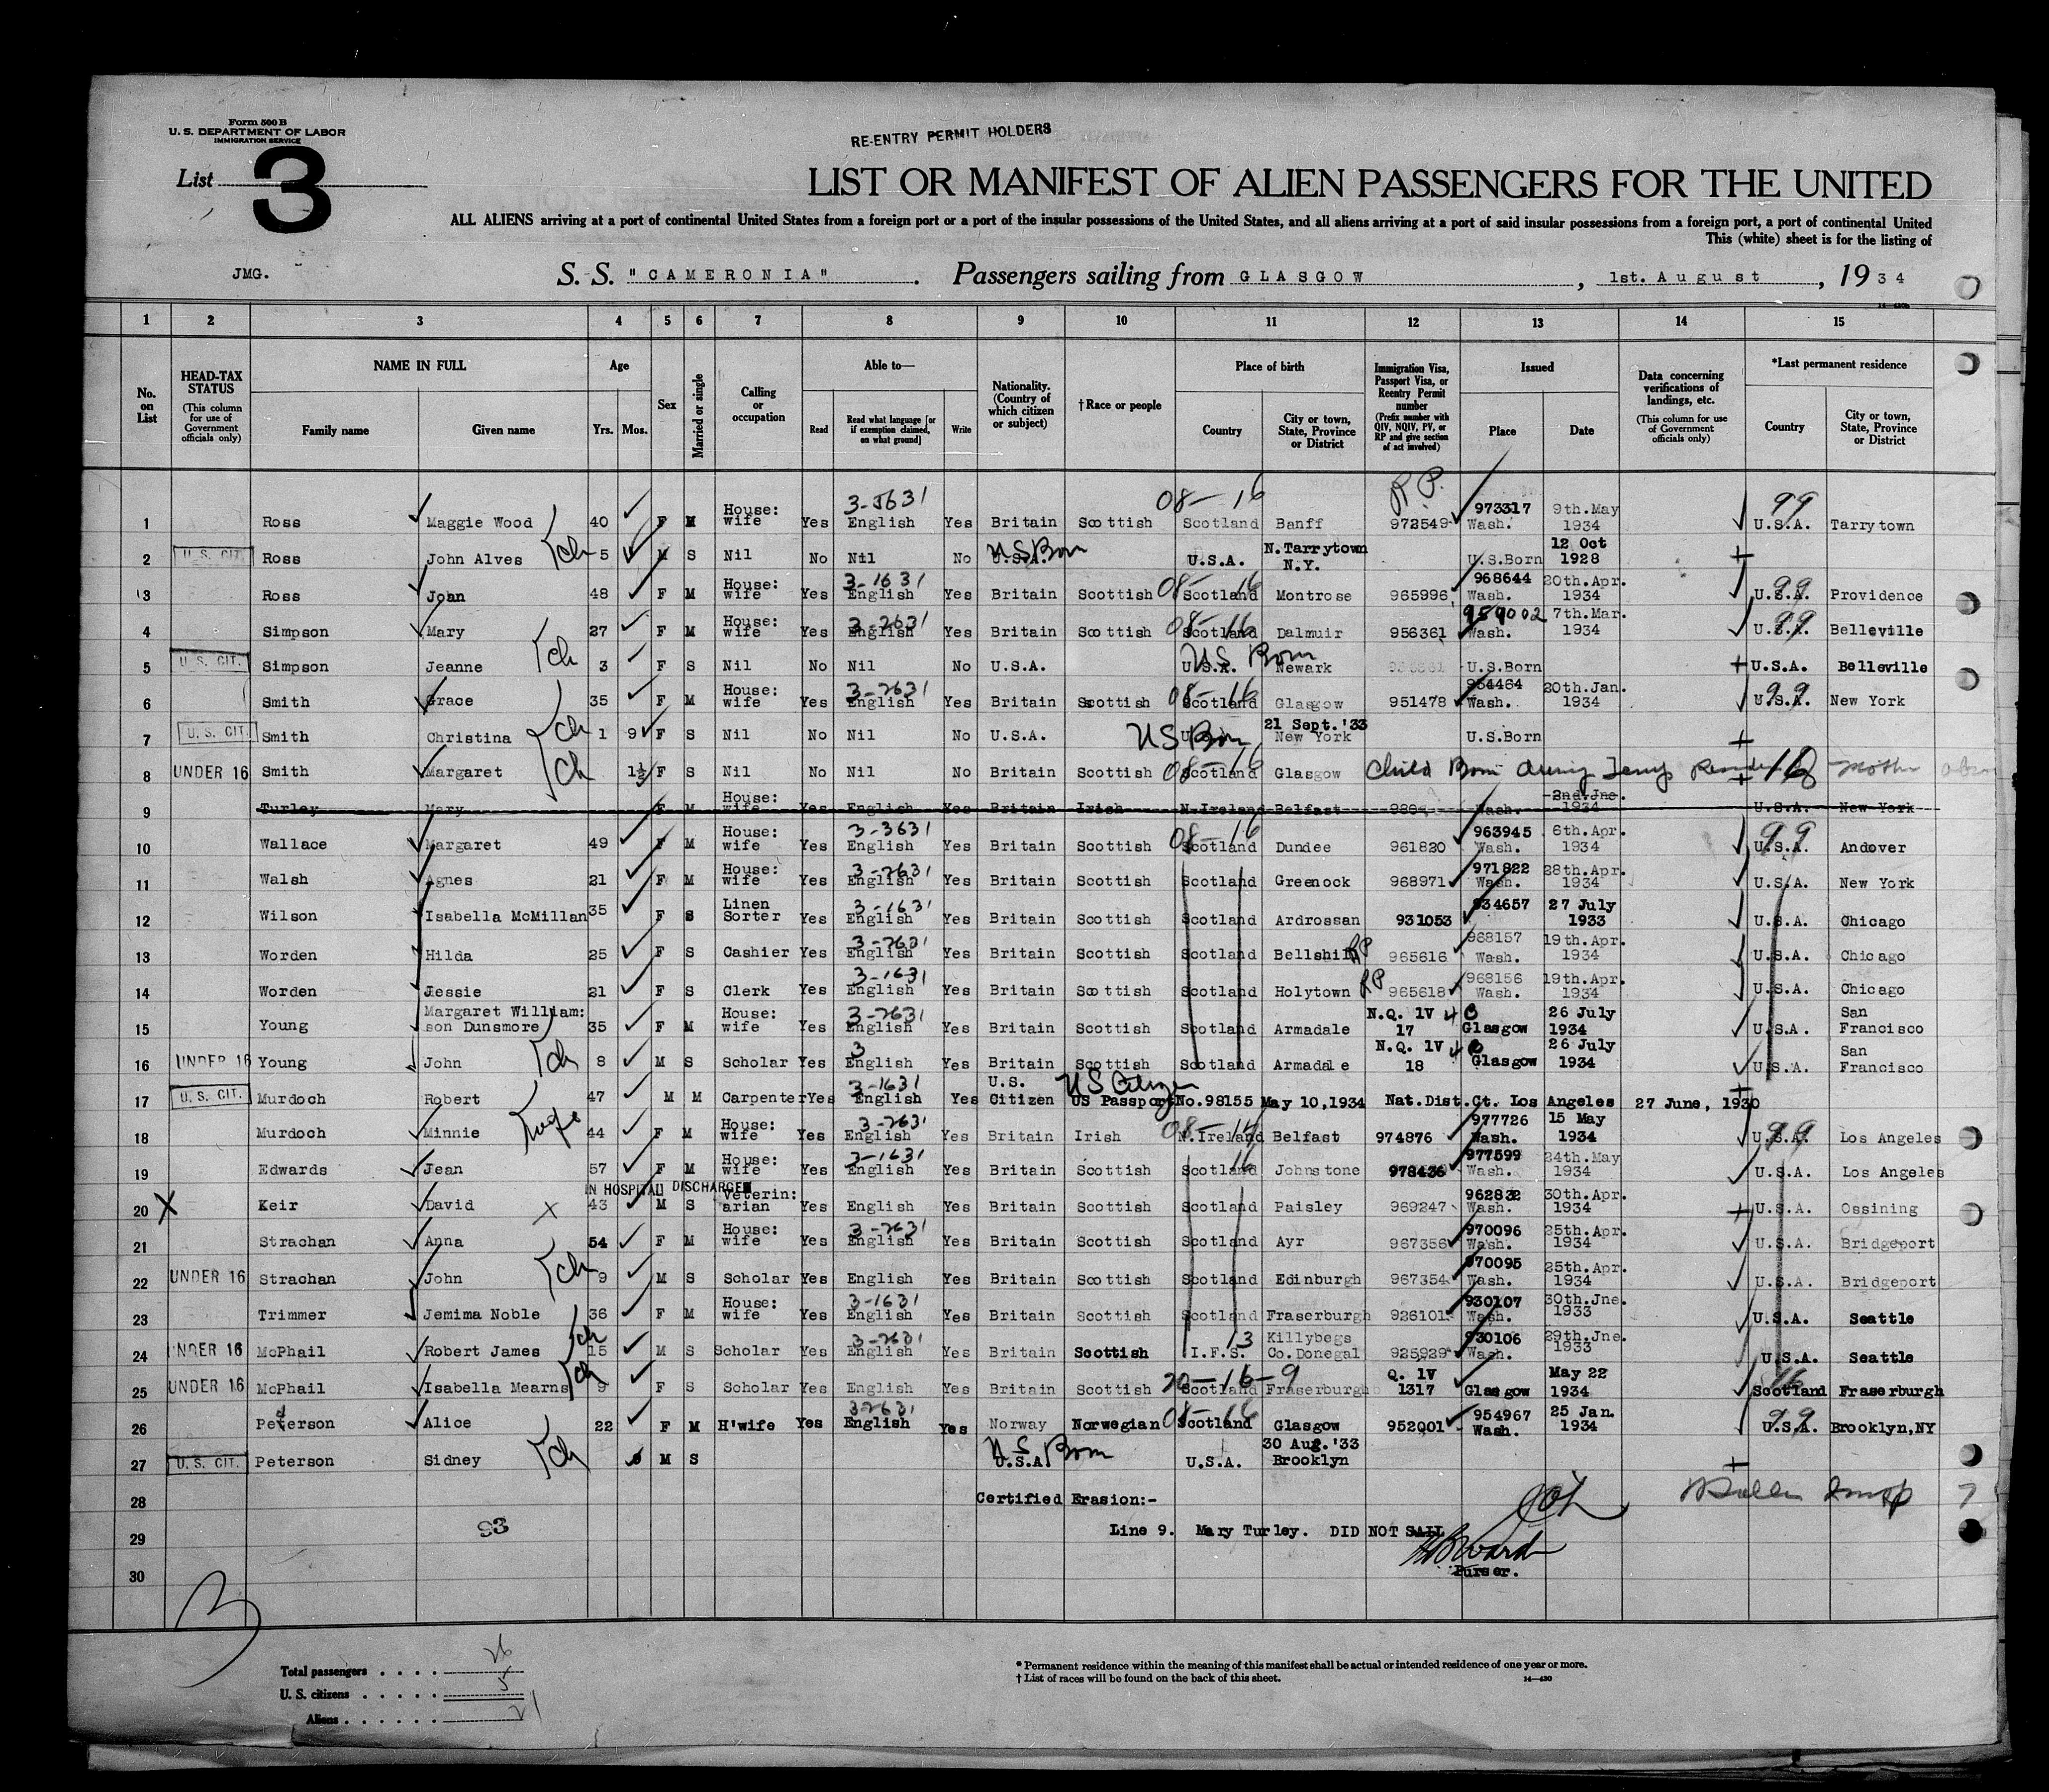 Form 500 B
U. S. DEPARTMENT OF LABOR
IMMIGRATION SERVICE
RE-ENTRY PERMIT HOLDERS
List 3
LIST OR MANIFEST OF ALIEN PASSENGERS FOR THE UNITED
ALL ALIENS arriving at a port of continental United States from a foreign port or a port of the insular possessions of the United States, and all aliens arriving at a port of said insular possessions from a foreign port, a port of continental United
This (white) sheet is for the listing of
JMG. S. S. "CAMERONIA". Passengers sailing from GLASGOW, 1st. August, 1934
1 2 3 4 5 6 7 8 9 10 11 12 13 14 15
No. on List
HEAD-TAX STATUS (This column for use of Government officials only)
NAME IN FULL Family name Given name
Age Yrs. Mos.
Sex
Married or single
Calling or occupation
Able to— Read Read what language [or if exemption claimed, on what ground] Write
Nationality. (Country of which citizen or subject)
†Race or people
Place of birth Country City or town, State, Province or District
Immigration Visa, Passport Visa, or Reentry Permit number (Prefix number with QIV, NQIV, PV, or RP and give section of act involved)
Issued Place Date
Data concerning verifications of landings, etc. (This column for use of Government officials only)
*Last permanent residence Country City or town, State, Province or District
R.P.
1 Ross Maggie Wood 40 F M House: wife Yes 3-3631 English Yes Britain Scottish 08-16 Scotland Banff 972549 973317 Wash. 9th.May 1934 99 U.S.A. Tarrytown
2 U.S. CIT. Ross John Alves ch 5 M S Nil No Nil No U.S.A. US Born U.S.A. N.Tarrytown N.Y. U.S.Born 12 Oct 1928
3 Ross Joan 48 F M House: wife Yes 3-1631 English Yes Britain Scottish 08-16 Scotland Montrose 965996 968644 Wash. 20th.Apr. 1934 99 U.S.A. Providence
4 Simpson Mary 27 F M House: wife Yes 3-2631 English Yes Britain Scottish 08-16 Scotland Dalmuir 956361 959002 Wash. 7th.Mar. 1934 99 U.S.A. Belleville
5 U.S. CIT. Simpson Jeanne ch 3 F S Nil No Nil No U.S.A. US Born U.S.A. Newark U.S.Born U.S.A. Belleville
6 Smith Grace 35 F M House: wife Yes 3-2631 English Yes Britain Scottish 08-16 Scotland Glasgow 951478 954464 Wash. 20th.Jan. 1934 99 U.S.A. New York
7 U.S. CIT. Smith Christina ch 1 9 F S Nil No Nil No U.S.A. US Born 21 Sept.'33 New York U.S.Born
8 UNDER 16 Smith Margaret ch 1½ F S Nil No Nil No Britain Scottish 08-16 Scotland Glasgow Child Born during Temp 16 Mother
9 Turley Mary F M House: Yes English Yes Britain Irish N.Ireland Belfast Wash. 2nd.Jne. 1934 U.S.A. New York
10 Wallace Margaret 49 F M House: wife Yes 3-3631 English Yes Britain Scottish 08-16 Scotland Dundee 961820 963945 Wash. 6th.Apr. 1934 99 U.S.A. Andover
11 Walsh Agnes 21 F M House: wife Yes 3-2631 English Yes Britain Scottish Scotland Greenock 968971 971822 Wash. 28th.Apr. 1934 U.S.A. New York
12 Wilson Isabella McMillan 35 F S Linen Sorter Yes 3-1631 English Yes Britain Scottish Scotland Ardrossan 931053 934657 27 July 1933 U.S.A. Chicago
13 Worden Hilda 25 F S Cashier Yes 3-2631 English Yes Britain Scottish Scotland Bellshill RP 965616 968157 Wash. 19th.Apr. 1934 U.S.A. Chicago
14 Worden Jessie 21 F S Clerk Yes 3-1631 English Yes Britain Scottish Scotland Holytown RP 965618 968156 Wash. 19th.Apr. 1934 U.S.A. Chicago
15 Young Margaret William: son Dunsmore 35 F M House: wife Yes 3-2631 English Yes Britain Scottish Scotland Armadale N.Q. 1V 17 Glasgow 26 July 1934 U.S.A. San Francisco
16 UNDER 16 Young John ch 8 M S Scholar Yes 3 English Yes Britain Scottish Scotland Armadale N.Q. 1V 18 Glasgow 26 July 1934 U.S.A. San Francisco
17 U.S. CIT. Murdoch Robert 47 M M Carpenter Yes 3-1631 English Yes U.S. Citizen US Citizen US Passport No.98155 May 10,1934 Nat.Dist.Ct. Los Angeles 27 June, 1930
18 Murdoch Minnie wife 44 F M House: wife Yes 3-2631 English Yes Britain Irish 08-14 N.Ireland Belfast 974876 977726 Wash. 15 May 1934 99 U.S.A. Los Angeles
19 Edwards Jean 57 F M House: wife Yes 3-1631 English Yes Britain Scottish 16 Scotland Johnstone 978436 977599 Wash. 24th.May 1934 U.S.A. Los Angeles
IN HOSPITAL DISCHARGED
20 X Keir David X 43 M S Veterin: arian Yes English Yes Britain Scottish Scotland Paisley 969247 962832 Wash. 30th.Apr. 1934 U.S.A. Ossining
21 Strachan Anna 54 F M House: wife Yes 3-2631 English Yes Britain Scottish Scotland Ayr 967356 970096 Wash. 25th.Apr. 1934 U.S.A. Bridgeport
22 UNDER 16 Strachan John ch 9 M S Scholar Yes English Yes Britain Scottish Scotland Edinburgh 967354 970095 Wash. 25th.Apr. 1934 U.S.A. Bridgeport
23 Trimmer Jemima Noble 36 F M House: wife Yes 3-1631 English Yes Britain Scottish Scotland Fraserburgh 926101 930107 Wash. 30th.Jne. 1933 U.S.A. Seattle
24 UNDER 16 McPhail Robert James ch 15 M S Scholar Yes 3-2631 English Yes Britain Scottish 13 I.F.S. Killybegs Co.Donegal 925929 930106 Wash. 29th.Jne. 1933 U.S.A. Seattle
25 UNDER 16 McPhail Isabella Mearns ch 9 F S Scholar Yes English Yes Britain Scottish 20-16-9 Scotland Fraserburgh Q. 1V 1317 Glasgow May 22 1934 16 Scotland Fraserburgh
26 Peterson Alice 22 F M H'wife Yes 32631 English Yes Norway Norwegian 08-16 Scotland Glasgow 952001 954967 Wash. 25 Jan. 1934 99 U.S.A. Brooklyn,NY
27 U.S. CIT. Peterson Sidney ch M S US Born U.S.A. U.S.A. 30 Aug.'33 Brooklyn
28 Certified Erasion:-
29 93 Line 9. Mary Turley. DID NOT SAIL
30 Purser.
3
Total passengers . . . . 26
U. S. citizens . . . . . 5
Aliens . . . . . . 21
* Permanent residence within the meaning of this manifest shall be actual or intended residence of one year or more.
† List of races will be found on the back of this sheet. 14—430